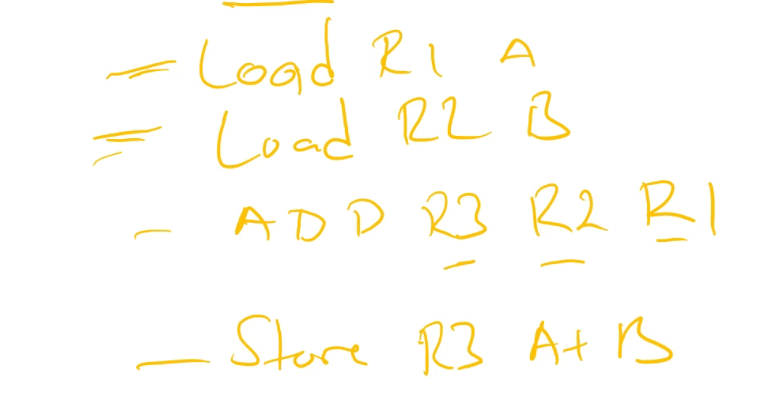 Load R1 A
Load R2 B
ADD R3 R2 R1
Store R3 A+B